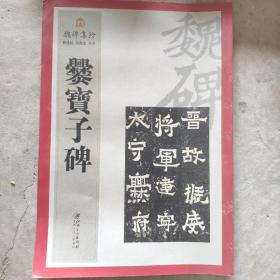 魏碑集珍
爨寶子碑
魏碑
晉故振威
將軍建寧
太守爨府